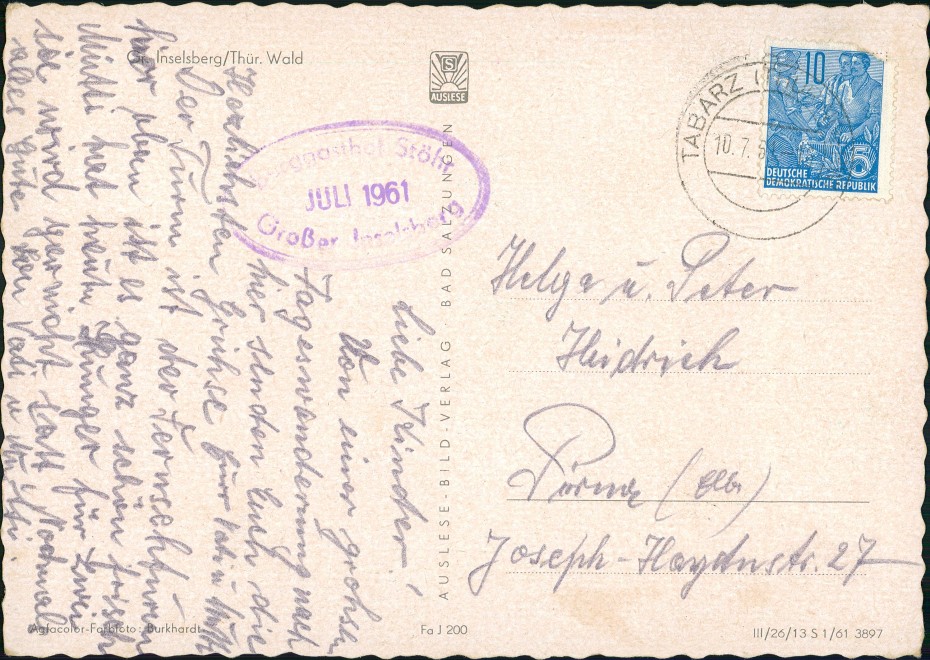 Gr. Inselsberg/Thür. Wald
S
AUSLESE
Berggasthof Stöhr
JULI 1961
Großer Inselsberg
TABARZ
10.7.
10
5
DEUTSCHE
DEMOKRATISCHE REPUBLIK
Liebe Kinder!
Von einer grohsen
Tageswanderung nach
hier senden Euch die
Herzlichsten Grühse Eure Vati u Mutti
Der Turm ist der Fernsehturm
hier oben ist es ganz schön frisch
Mutti hat heute Hunger für Zwei
sie wird garnicht satt Nochmal
alles gute von Vati u Mutti.
AUSLESE-BILD-VERLAG · BAD SALZUNGEN
Helga u. Peter
Heidrich
Pirna (Elbe)
Joseph-Haydnstr. 27
Agfacolor-Farbfoto: Burkhardt
Fa J 200
III/26/13 S 1/61 3897